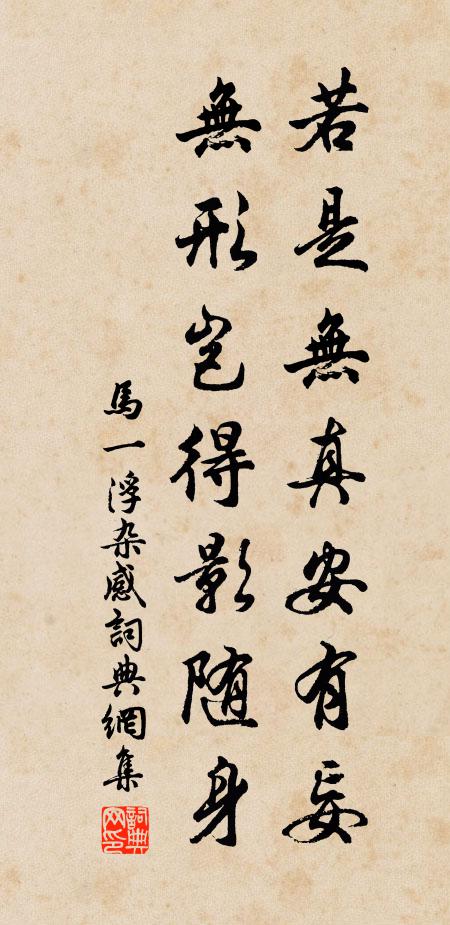 若是無真安有妄
無形豈得影隨身
馬一浮杂感詞典網集
詞典網印